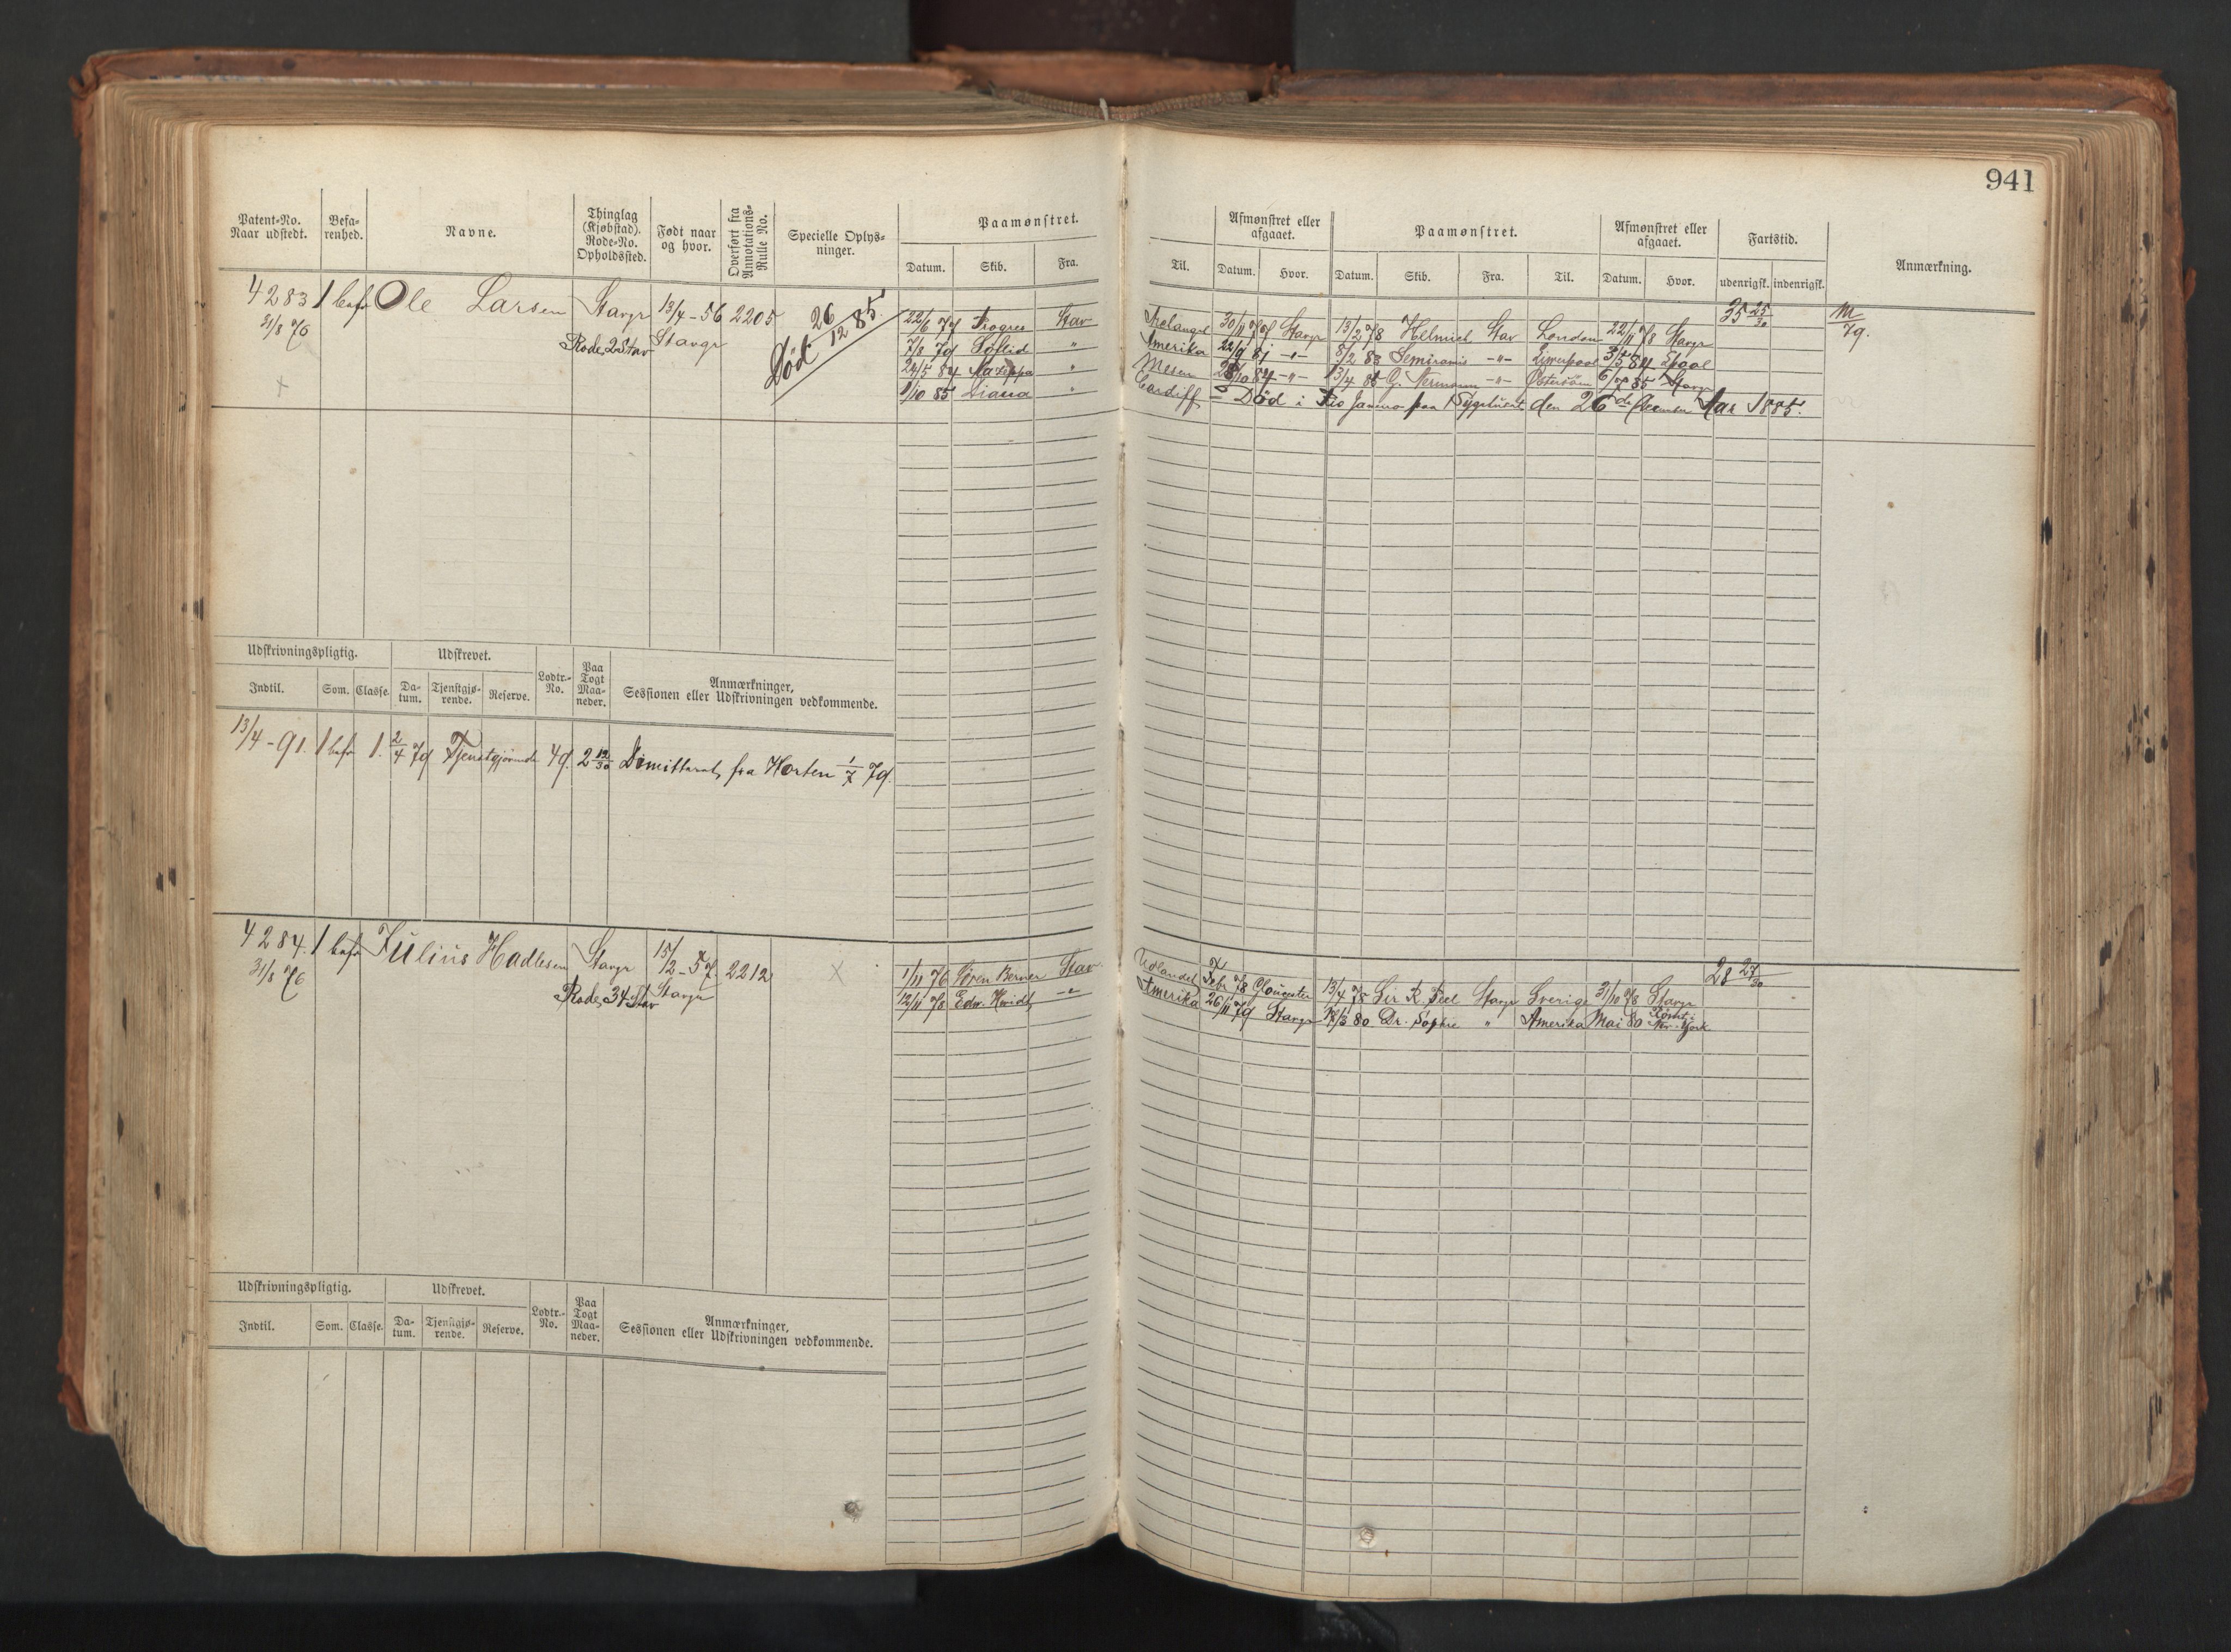 941
Patent-No. Naar udstedt. Befarenhed. Navne. Thinglag (Kjøbstad). Rode-No. Opholdssted. Født naar og hvor. Overført fra Annotations-Rulle No. Specielle Oplysninger. Paamønstret. Afmønstret eller afgaaet. Paamønstret. Afmønstret eller afgaaet. Fartstid. Anmærkning.
Datum. Skib. Fra. Til. Datum. Hvor. Datum. Skib. Fra. Til. Datum. Hvor. udenrigsk. indenrigsk.
4283 1 bef Ole Larsen Stavgr 13/4-56 2205 35 25/30 M/79.
31/8 76 Rode 2 Stav Stavgr Død 26/12 85.
22/6 77 Progres Stav 30/11 77 Stavgr 13/2 78 Helmich Stav London 22/11 78 Stavgr
7/8 79 Solid " Amerika 22/9 81 -"- 8/2 83 Semiramis -"- Liverpool 3/5 84
24/5 84 Mazeppa " 28/10 84 -"- 13/4 85 -"- Østersøen 6/7 85 Stavgr
1/10 85 Diana " Cardiff - Død i Rio Janero paa Sygehuset den 26de December Aar 1885.
Udskrivningspligtig. Udskrevet. Lodtr.-No. Paa Togt Maaneder. Anmærkninger, Sessionen eller Udskrivningen vedkommende.
Indtil. Som. Classe. Datum. Tjenstgjørende. Reserve.
13/4-91. 1 bef 1. 2/4 79 Tjenstgjørende 49. 2 12/30 Dimitteret fra Horten 1/7 79.
4284. 1 bef Julius Hadlesen Stavgr 15/12-57 2212 28 27/30
31/8 76 Rode 34 Stav Stavgr
1/11 76 Søren Berner Stav Udlandet Febr 78 Gloucester 13/4 78 Sir R. Peel Stavgr Sverige 31/10 78 Stavgr
12/11 78 Edw. Hvidt -"- Amerika 26/11 79 Stavgr 80 Dr. Sophie " Amerika Mai 80 Rømt i New-York
Udskrivningspligtig. Udskrevet. Lodtr.-No. Paa Togt Maaneder. Anmærkninger, Sessionen eller Udskrivningen vedkommende.
Indtil. Som. Classe. Datum. Tjenstgjørende. Reserve.